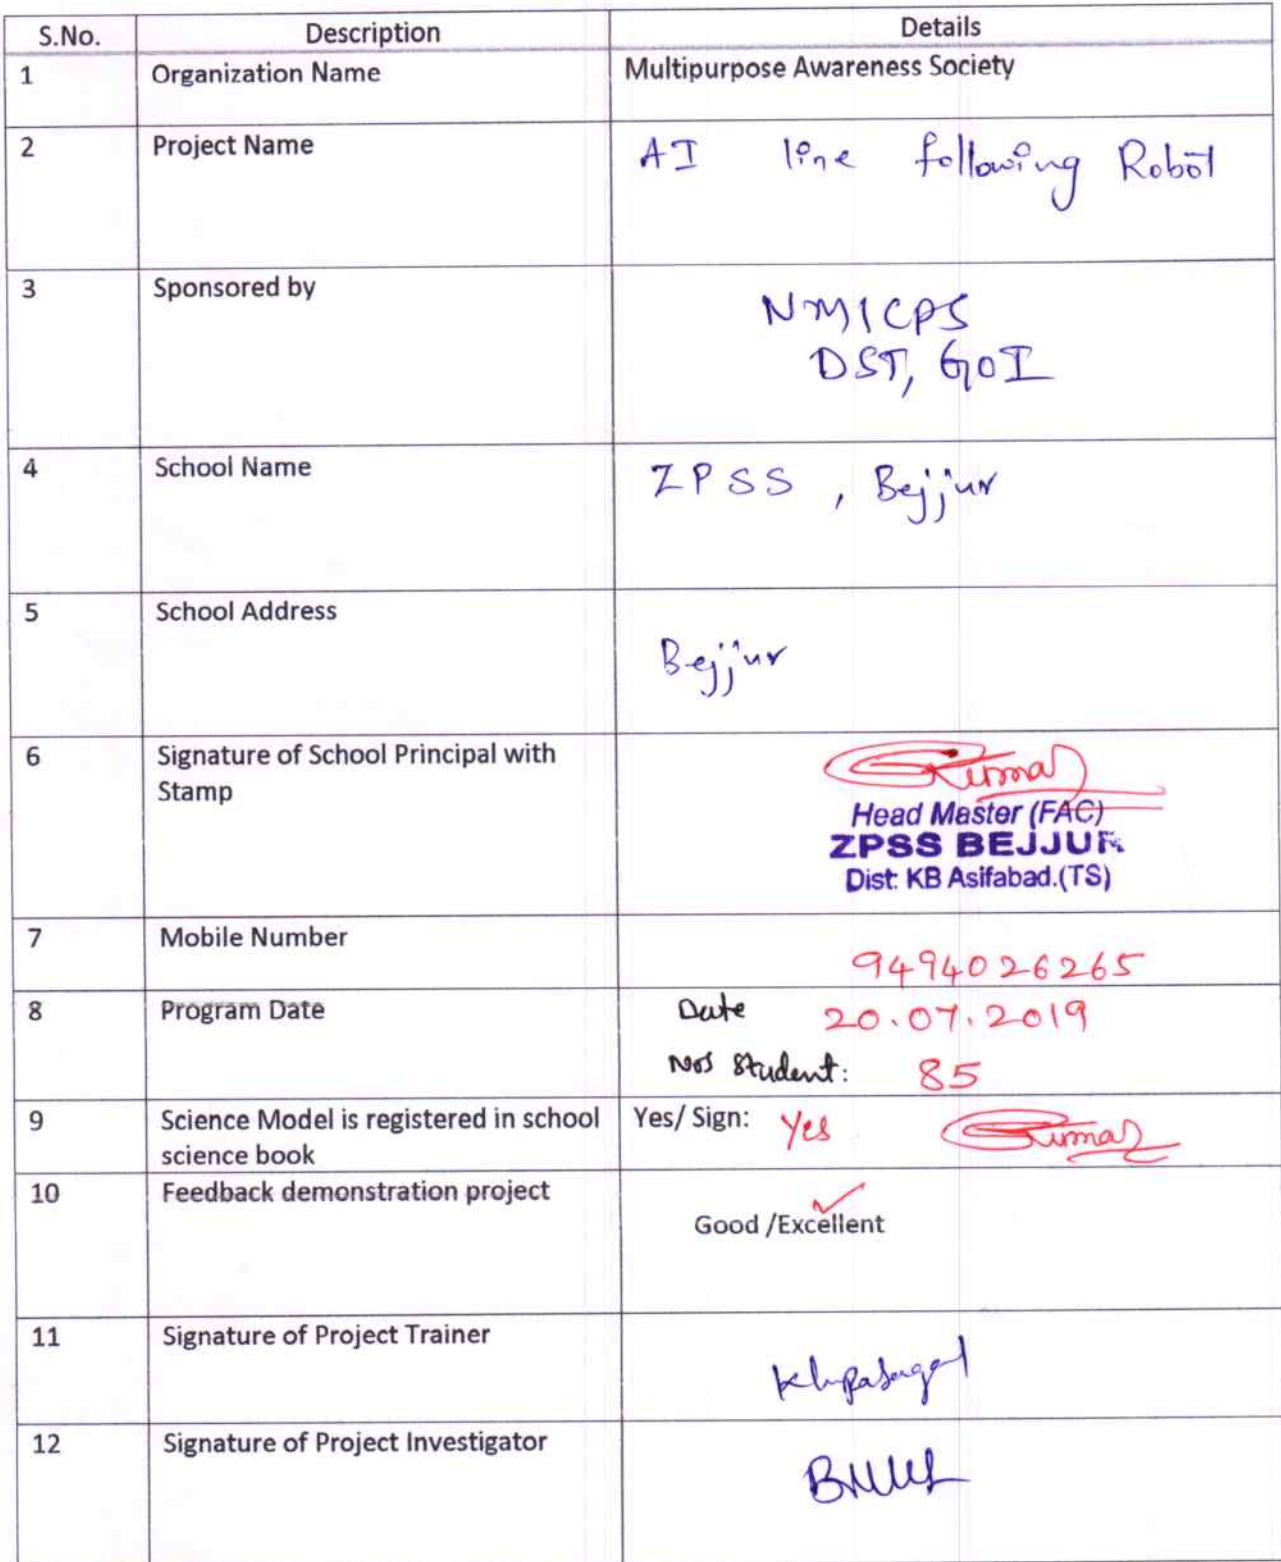 S.No. Description Details
1 Organization Name Multipurpose Awareness Society
2 Project Name AI line following Robot
3 Sponsored by NMICPS
DST, GOI
4 School Name ZPSS, Bejjur
5 School Address Bejjur
6 Signature of School Principal with
Stamp
Head Master (FAC)
ZPSS BEJJUR
Dist: KB Asifabad.(TS)
7 Mobile Number 9494026265
8 Program Date Date 20.07.2019
Nos Student: 85
9 Science Model is registered in school Yes/ Sign: Yes
science book
10 Feedback demonstration project
Good /Excellent
11 Signature of Project Trainer
12 Signature of Project Investigator